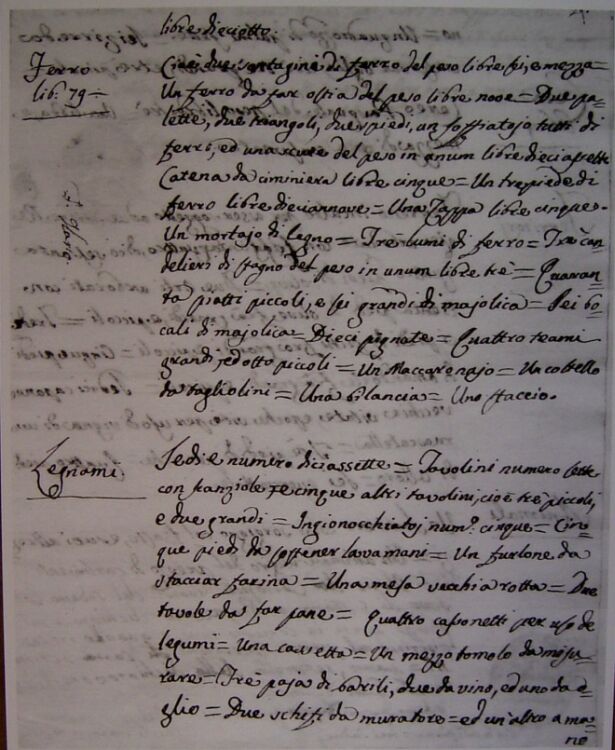 libre dieciotto.
Ferro
lib. 79
Cioè due sartagine di ferro del peso libre sei, e mezza=
Un ferro da far ostia del peso libre nove = Due pa-
lette, due triangoli, due spiedi, un soffiatojo tutti di
ferro, ed una scure del peso in unum libre dieciassette
Catena da ciminiera libre cinque = Un trepiede di
ferro libre dieciannove = Una Zappa libre cinque =
Un mortajo di legno = Trè lumi di ferro = Trè can
delieri di stagno del peso in unum libre trè = Quaran
ta piatti piccoli, e sei grandi di majolica = Sei bo
cali di majolica = Dieci pignate = Quattro teami
grandi, ed otto piccoli = Un Maccarenajo = Un coltello
da tagliolini = Una bilancia = Uno staccio.
Legnami
Sedie numero diciassette = Tavolini numero sette
con stanziole, e cinque altri tavolini, cioè trè piccoli,
e due grandi = Ingionocchiatoj num.º cinque = Cin
que piedi da sostener lavamani = Un furlone da
stacciar farina = Una mesa vecchia rotta = Due
tavole da far pane = Quattro cassonetti per uso de
legumi = Una cassetta = Un mezzo tomolo da misu
rare = Trè paja di barili, due da vino, ed uno da o
glio = Due schifi da muratore = ed un'altro a ma
no